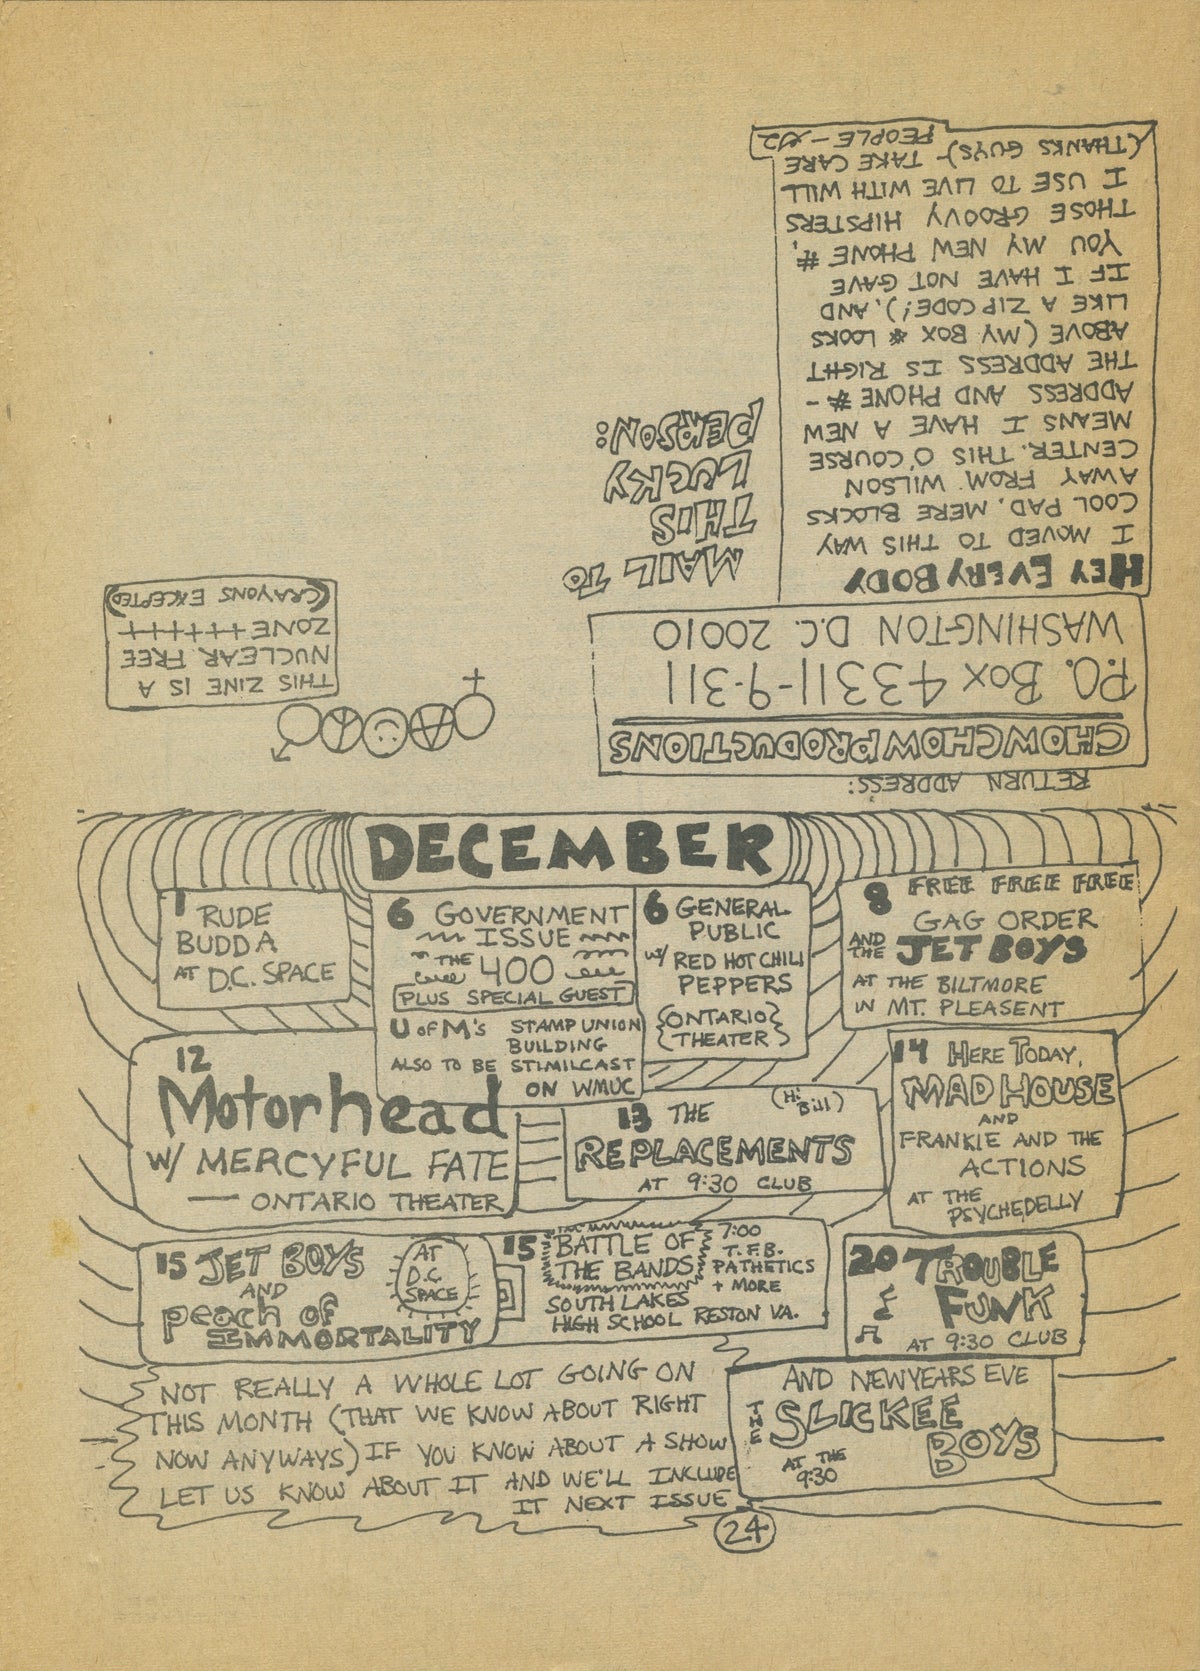 RETURN ADDRESS:
CHOWCHOWPRODUCTIONS
P.O. BOX 43311-9311
WASHINGTON D.C. 20010
HEY EVERYBODY
I MOVED TO THIS WAY
COOL PAD, MERE BLOCKS
AWAY FROM WILSON
CENTER. THIS O'COURSE
MEANS I HAVE A NEW
ADDRESS AND PHONE # -
THE ADDRESS IS RIGHT
ABOVE (MY BOX # LOOKS
LIKE A ZIPCODE!), AND
IF I HAVE NOT GAVE
YOU MY NEW PHONE #,
THOSE GROOVY HIPSTERS
I USE TO LIVE WITH WILL
(THANKS GUYS) - TAKE CARE
PEOPLE -
MAIL TO
THIS
LUCKY
PERSON:
THIS ZINE IS A
NUCLEAR FREE
ZONE ++++++
(CRAYONS EXCEPTED)
DECEMBER
1 RUDE
BUDDA
AT D.C. SPACE
6 GOVERNMENT
ISSUE
THE
400
PLUS SPECIAL GUEST
U OF M'S STAMP UNION
BUILDING
ALSO TO BE STIMILCAST
ON WMUC
6 GENERAL
PUBLIC
W/ RED HOT CHILI
PEPPERS
{ONTARIO}
{THEATER}
8 FREE FREE FREE
GAG ORDER
AND THE JET BOYS
AT THE BILTMORE
IN MT. PLEASENT
12
Motorhead
W/ MERCYFUL FATE
— ONTARIO THEATER
13 THE (Hi Bill)
REPLACEMENTS
AT 9:30 CLUB
14 HERE TODAY,
MAD HOUSE
AND
FRANKIE AND THE
ACTIONS
AT THE
PSYCHEDELLY
15 JET BOYS
AND
peach of
IMMORTALITY
AT
D.C.
SPACE
15 BATTLE OF
THE BANDS
SOUTH LAKES
HIGH SCHOOL RESTON VA.
7:00
T.F.B.
PATHETICS
+ MORE
20 TROUBLE
FUNK
AT 9:30 CLUB
NOT REALLY A WHOLE LOT GOING ON
THIS MONTH (THAT WE KNOW ABOUT RIGHT
NOW ANYWAYS) IF YOU KNOW ABOUT A SHOW
LET US KNOW ABOUT IT AND WE'LL INCLUDE
IT NEXT ISSUE
AND NEWYEARS EVE
THE SLICKEE
BOYS
AT THE
9:30
24